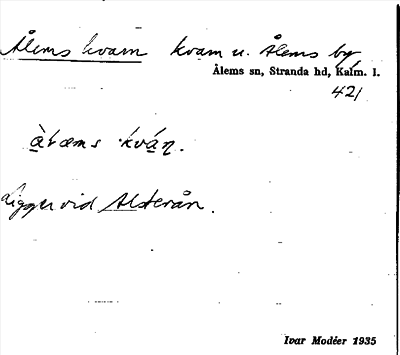 Ålems kvarn kvarn u. Ålems by
Ålems sn, Stranda hd, Kalm. l.
421
Ligger vid Alsterån.
Ivar Modéer 1935